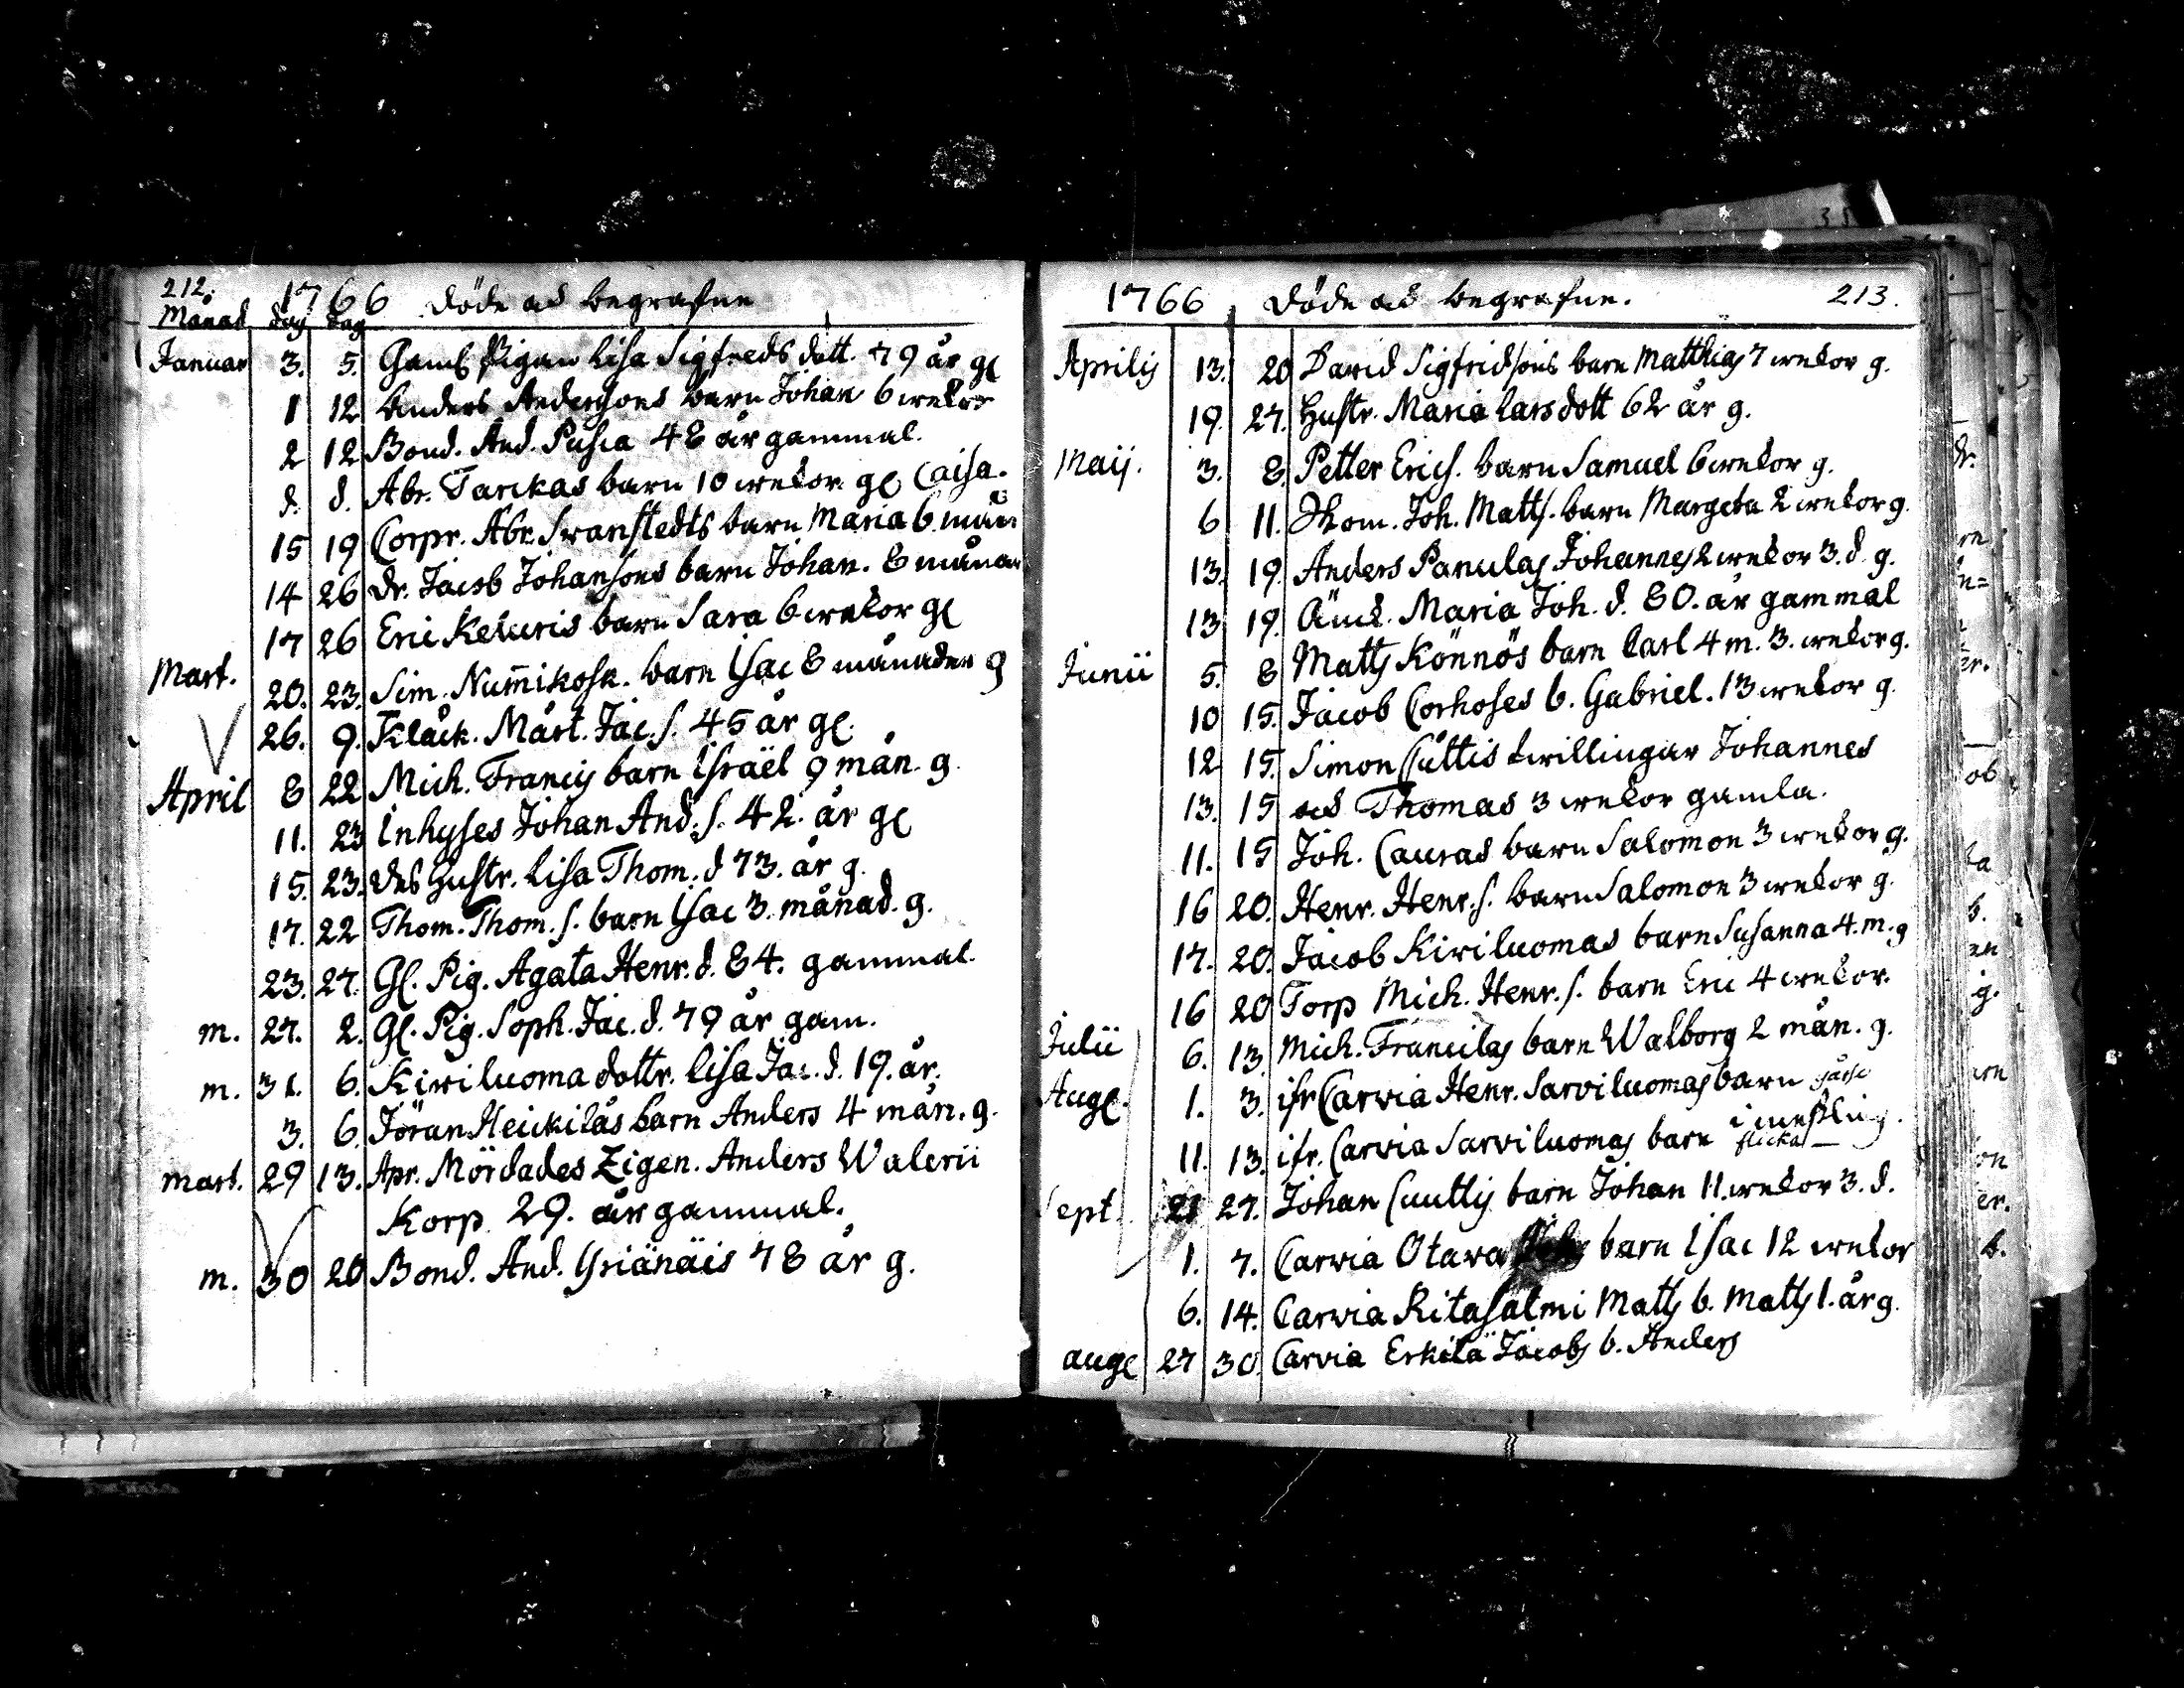 212.
1766 Döde och begrafne
Månad dag dag
Januar 3. 5. Gaml Pigan Lisa Sigfreds dott. 79 år gl
1 12 Anders Andersons barn Johan 6 wekor
2 12 Bond. And. Pusia 48 år gammal.
d. d. Abr. Tarckas barn 10 wekor gl Caisa.
15 19 Corpr. Abr. Swanstedts barn Maria 6. mån
14 26 dr. Jacob Johansons barn Johan. 8 månan
17 26 Eric Kekuris barn Sara 6 wekor gl
Mart. 20. 23. Sim. Num̄ikosk. barn Isac 8 månader g
26. 9. Klåck. Mårt. Jac. s. 45 år gl.
April 8 22 Mich. Francis barn Israël 9 mån. g.
11. 23 Inhyses Johan And. s. 42. år gl
15. 23. des Hustr. Lisa Thom. d 73. år g.
17. 22 Thom. Thom. s. barn Isac 3. månad. g.
23. 27. Gl. Pig. Agata Henr. d. 84. gammal.
m. 27. 2. Gl. Pig. Soph. Jac. d. 79 år gam.
m. 31. 6. Kiwiluoma dottr. Lisa Jac. d. 19. år.
3. 6. Jöran Heickiläs barn Anders 4 mån. g.
mart. 29 13. Apr. Mördades Zigen. Anders Walerii
Korp. 29. år gammal.
m. 30 20 Bond. And. Yriänäis 78 år g.
1766 Döde och begrafne. 213.
Aprilis 13. 20 David Sigfridsons barn Matthias 7 wekor g.
19. 27. Hustr. Maria Lars dott 62 år g.
Maij. 3. 8. Petter Erics. barn Samuel 6 wekor g.
6 11. Thom. Joh. Matts. barn Margeta 2 wekor g.
13. 19. Anders Panulas Johannes 2 wekor 3. d. g.
13 19. Änck. Maria Joh. d. 80. år gammal
Junii 5. 8 Matts Könnös barn Carl 4 m. 3. wekor g.
10 15. Jacob Corhoses b. Gabriel. 13 wekor g.
12 15. Simon Cuttis twillingar Johannes
13. 15 och Thomas 3 wekor gamla.
11. 15 Joh. Cauras barn Salomon 3 wekor g.
16 20. Henr. Henr. s. barn Salomon 3 wekor g.
17. 20. Jacob Kiviluomas barn Susanna 4. m. g
16 20 Torp Mich. Henr. s. barn Eric 4 wekor.
Julii 6. 13. Mich. Francilas barn Walborg 2 mån. g.
Augl. 1. 3. ifr Carvia Henr. Sarviluomas barn
i messling.
11. 13. ifr. Carvia Sarviluomas barn flicka
Sept. 21 27. Johan Cuuttis barn Johan 11. wekor 3. d.
1. 7. Carvia Otava barn Isac 12 wekor
6. 14. Carvia Ritasalmi Matts b. Matts 1. år g.
augl 27 30. Carvia Erkilä Jacobs b. Anders